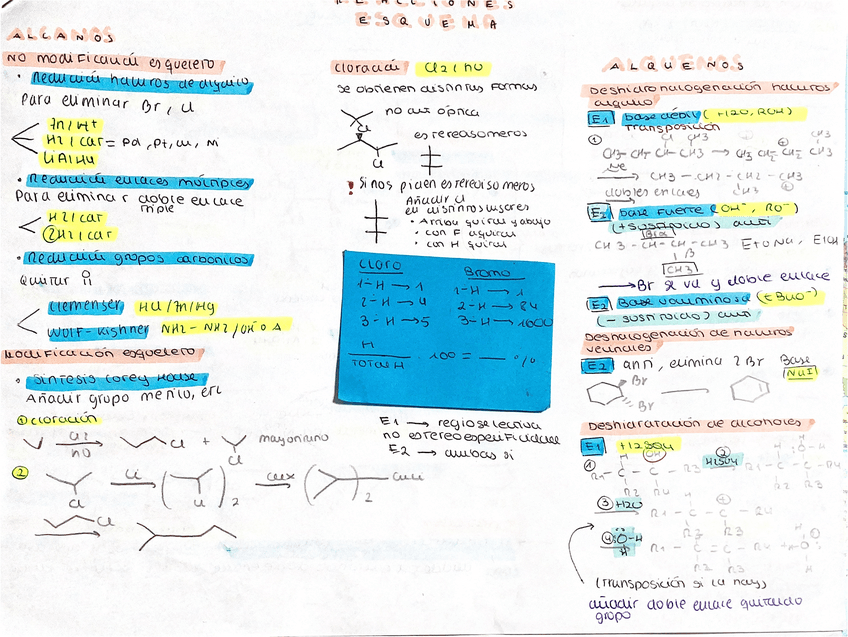 REACCIONES
ESQUEMA
ALCANOS
NO modificación esqueleto
• Reducción haluros de alquilo
Para eliminar Br, Cl
Zn/H+
H2/cat = Pd, Pt, Cu, Ni
LiAlH4
• Reducción enlaces múltiples
Para eliminar doble enlace
triple
H2/cat
2H2/cat
• Reducción grupos carbonilos
Quitar O
Clemensen HCl/Zn/Hg
Wolf-Kishner NH2-NH2/OH- o Δ
Modificación esqueleto
• Síntesis corey House
Añadir grupo metilo, etc
① cloración
Cl2
hν
Cl + Cl mayoritario
②
Cl
Li
Li
2
CuX
2
CuLi
Cl
Cloración Cl2/hν
se obtienen distintas formas
no act óptica
Cl
Cl
estereoisomeros
! Si nos piden estereoisomeros
Añadir Cl
en distintos lugares
• Arriba quiral y abajo
• con F quiral
• con H quiral
Cloro
1-H → 1
2-H → 4
3-H → 5
Bromo
1-H → 1
2-H → 84
3-H → 1600
H
TOTAL H
· 100 = ___ %
E1 → regioselectiva
no estereoespecificidad
E2 → ambas si
ALQUENOS
Deshidrohalogenación haluros
alquilo
E1 base débil (H2O, ROH)
Transposición
①
dobles enlaces
E2 base fuerte (OH-, RO-)
(+sustituido) anti
CH3-CH-CH-CH3 EtONa, EtOH
CH3
→ Br se va y doble enlace
E2 Base voluminosa (tBuO-)
(-sustituido) anti
Deshalogenación de haluros
vecinales
E2 anti, elimina 2 Br Base
NaI
Br
Br
Deshidratación de alcoholes
E1 H2SO4
①
OH
R1-C-C-R3
R2 R4
②
H2SO4
③ H2O
④
(transposición si la hay)
añadir doble enlace quitando
grupo